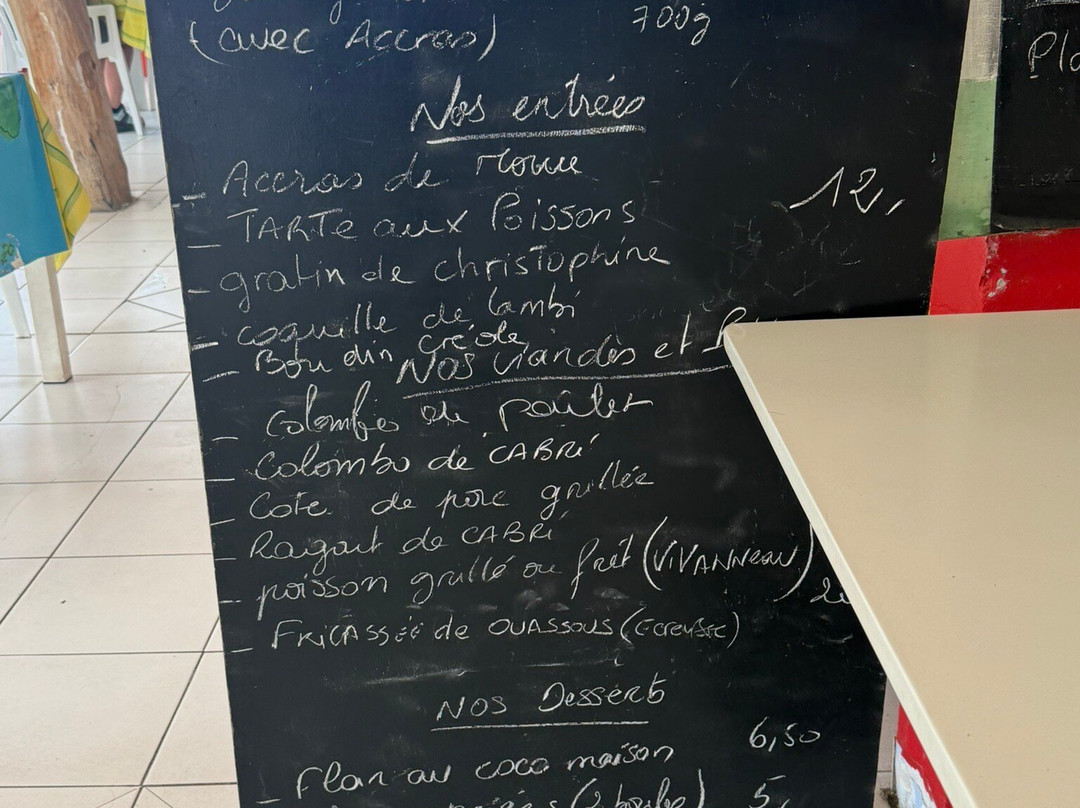 (avec Accras) 700g
Pla
Nos entrées
- Accras de Morue
- TARTE aux Poissons 12,
- gratin de christophine
- coquille de lambi
- Boudin créole
Nos viandes et
- Colombo de poulet
- Colombo de CABRI
- Cote de porc grillée
- Ragout de CABRI
- poisson grillé ou frit (VIVANNEAU)
- FRICASSÉE de OUASSOUS (Ecrevisse)
Nos Desserts
- Flan au coco maison 6,50
(2 boules) 5,